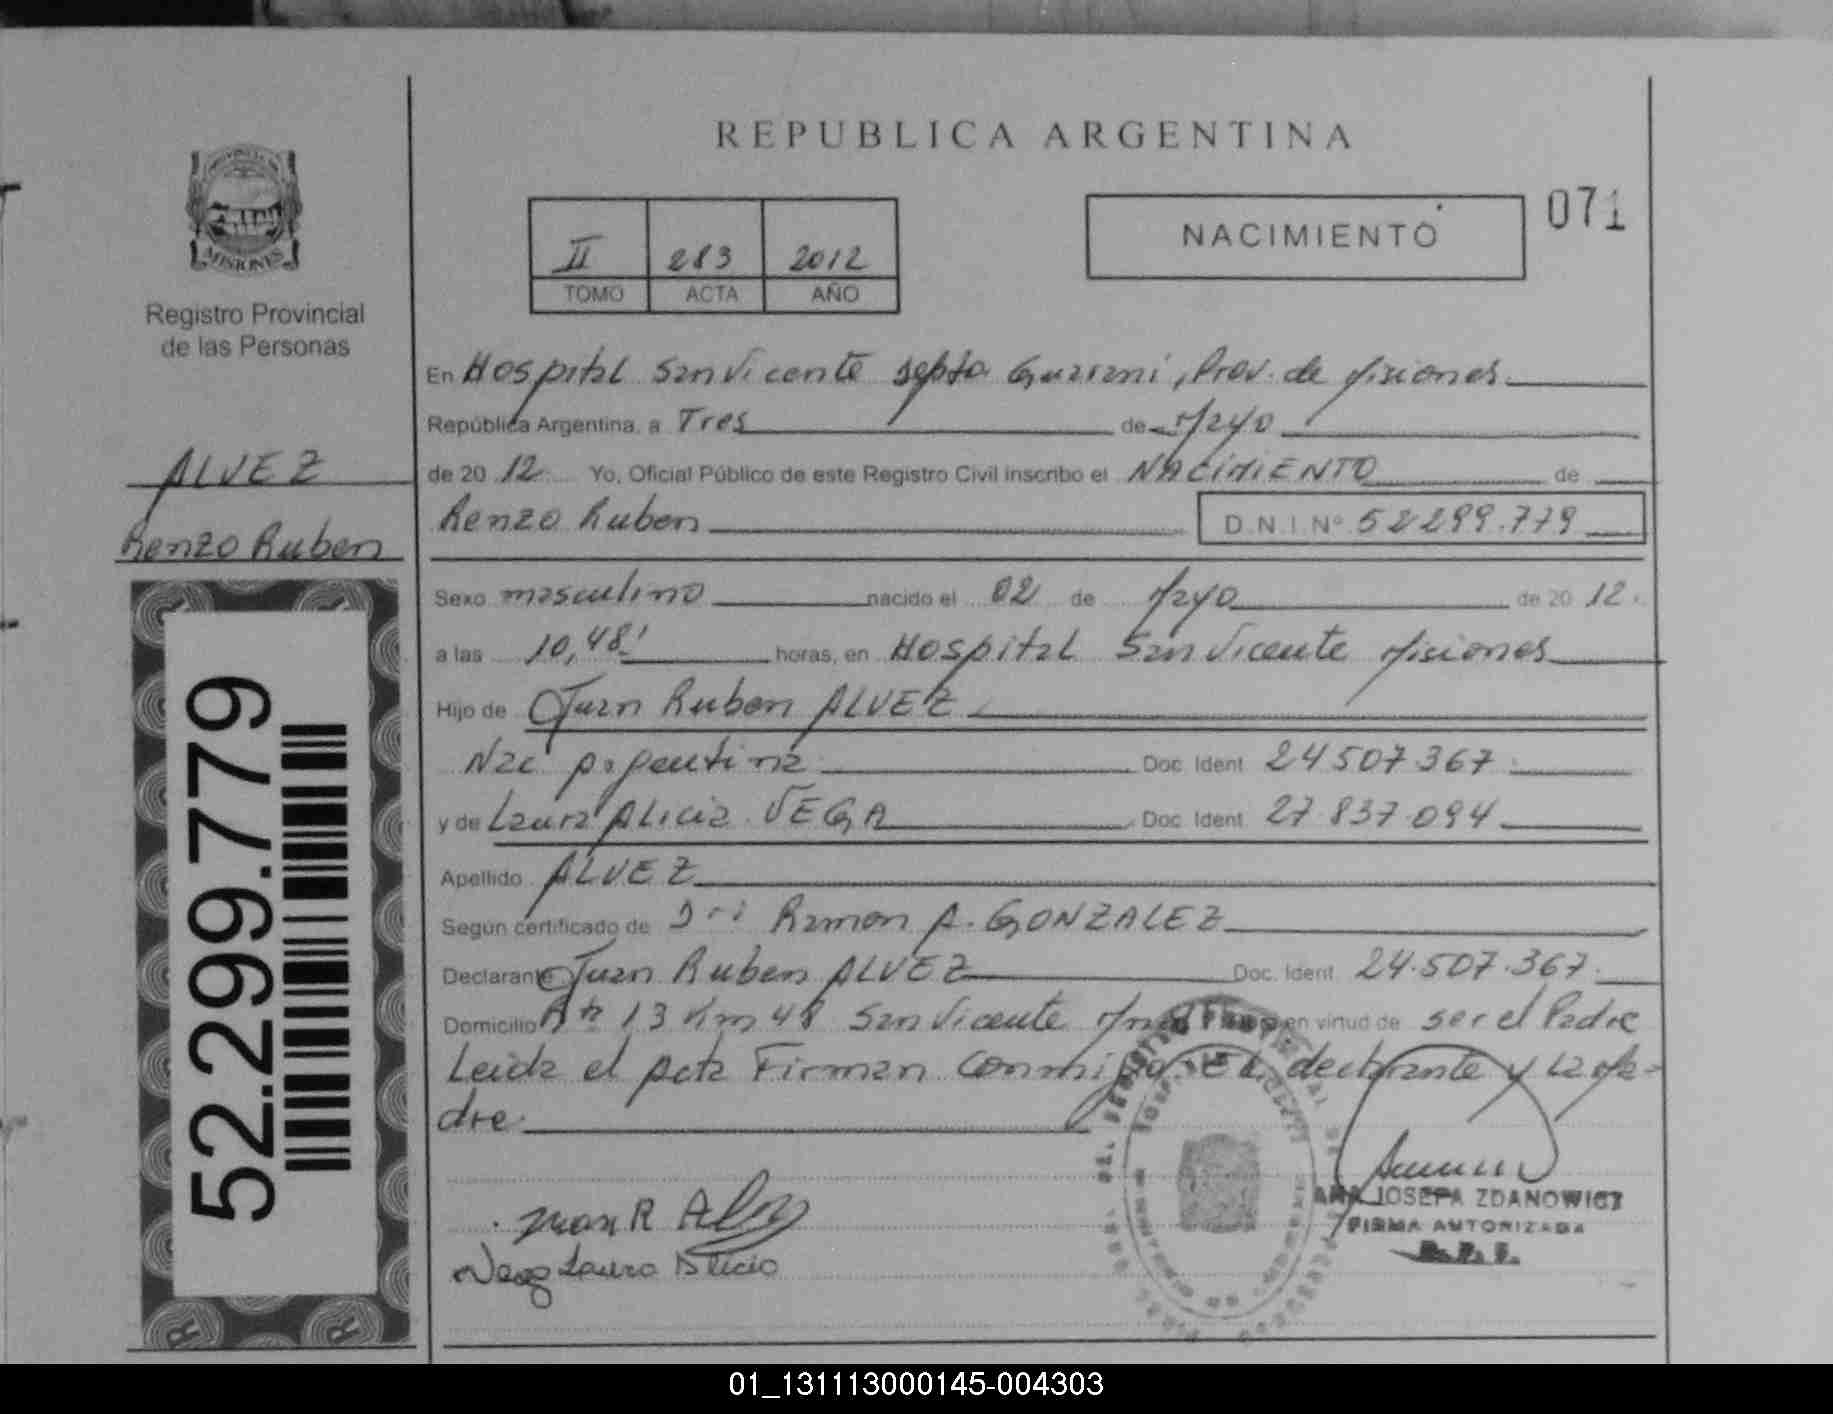 REPUBLICA ARGENTINA
071
NACIMIENTO
II 283 2012
TOMO ACTA AÑO
MISIONES
Registro Provincial
de las Personas
ALVEZ
Renzo Ruben
52.299.779
En Hospital San Vicente Depto Guarani, Prov. de Misiones
República Argentina, a Tres de Mayo
de 20 12 Yo, Oficial Público de este Registro Civil inscribo el NACIMIENTO de
Renzo Ruben D.N.I. Nº 52299.779
Sexo masculino nacido el 02 de Mayo de 20 12.
a las 10,48' horas, en Hospital San Vicente Misiones
Hijo de Juan Ruben ALVEZ
Nac Argentina Doc. Ident. 24507.367
y de Laura Alicia VEGA Doc. Ident. 27.837.094
Apellido ALVEZ
Según certificado de Ramon A. GONZALEZ
Declarante Juan Ruben ALVEZ Doc. Ident. 24.507.367.
Domicilio Rta 13 Km 48 San Vicente en virtud de ser el Padre
Leida el Acta Firman Conmigo EL declarante y La Ma-
dre
Juan R Alvez
Vega Laura Alicia
ANA JOSEFA ZDANOWICZ
FIRMA AUTORIZADA
R.P.P.
01_131113000145-004303